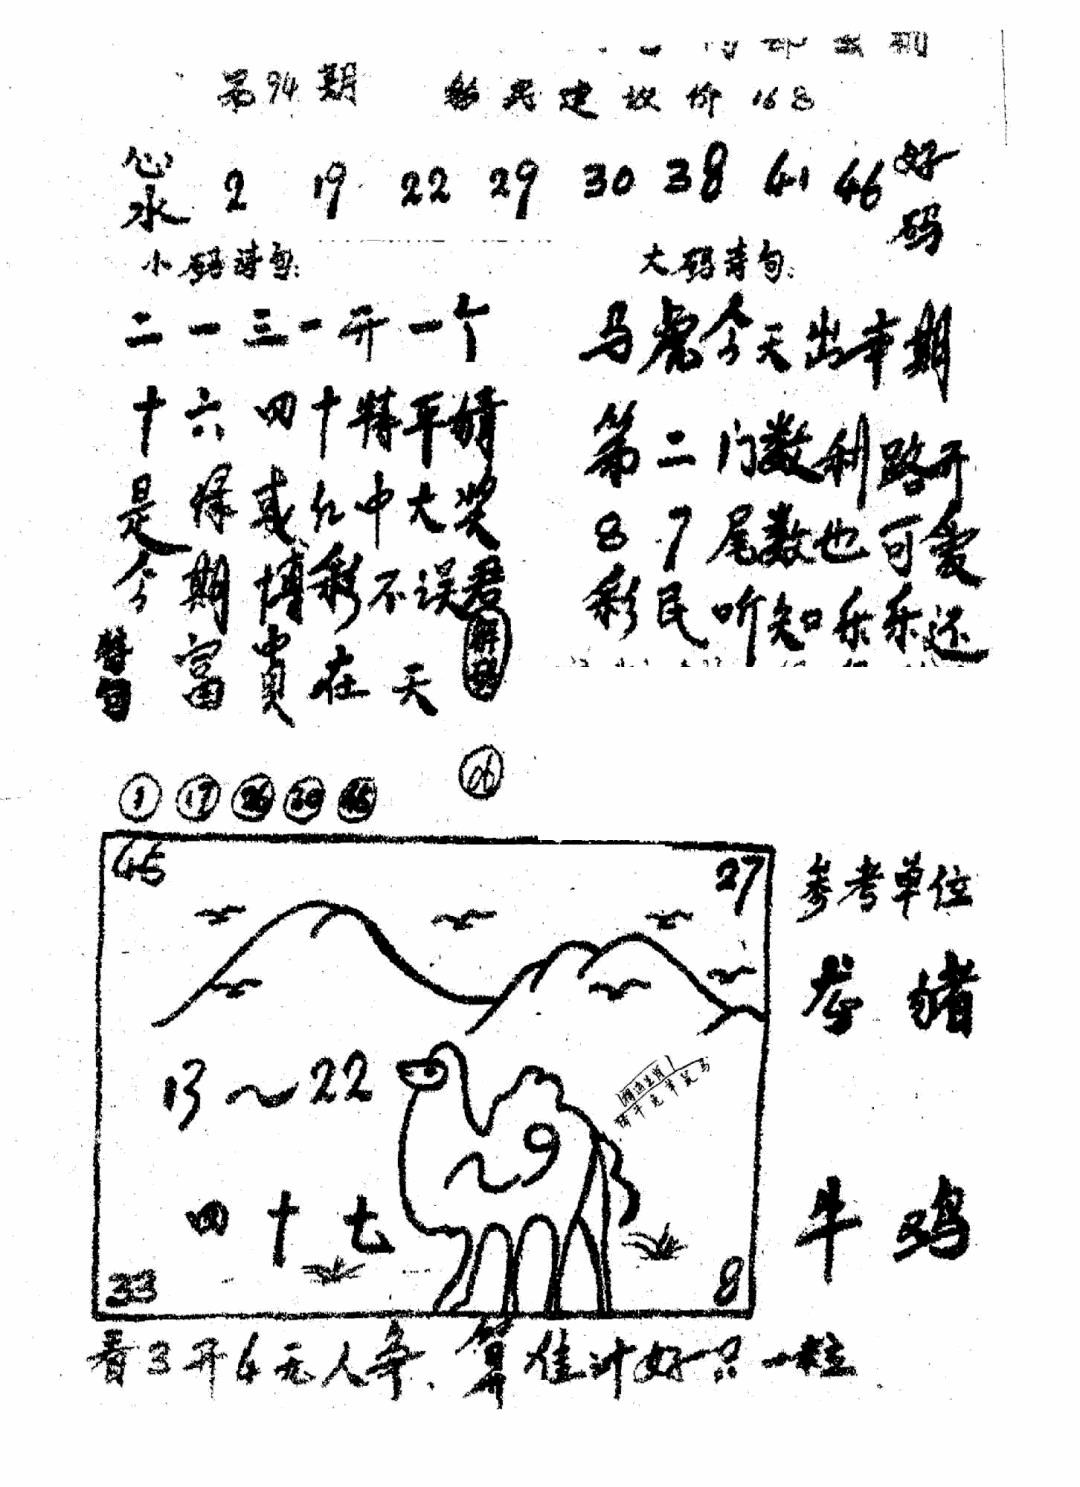 第94期 彩民建议价168
心水 2 19 22 29 30 38 41 46 好码
小码诗句:
二一三一开一个
十六四十特平婧
是保或红中大奖
今期博彩不误君
特句 富贵在天
解码
大码诗句:
马虎今天出本期
第二门数利路开
87尾数也可爱
彩民听知乐乐还
06
1 17 26 30 45
45 27
参考单位
龙 猪
13~22
9
四十七
牛 鸡
33 8
看3开4无人争、算准计好只一粒